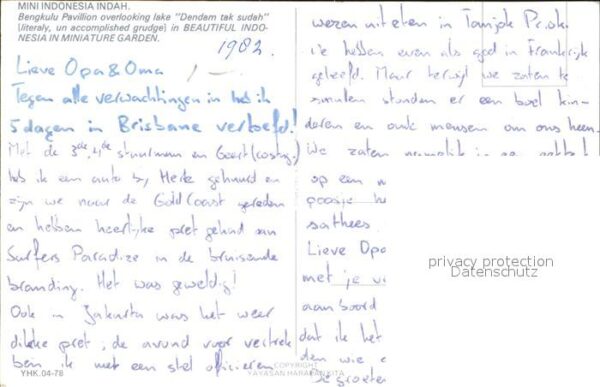 MINI INDONESIA INDAH.
Bengkulu Pavillion overlooking lake "Dendam tak sudah"
(literaly, un accomplished grudge) in BEAUTIFUL INDO-
NESIA IN MINIATURE GARDEN.
1982.
Lieve Opa & Oma
Tegen alle verwachtingen in heb ik
5 dagen in Brisbane vertoefd!
Met de 3de, 4de stuurman en Geert
heb ik een auto bij Hertz gehuurd en
zijn we naar de Gold Coast gereden
en hebben heerlijke pret gehad aan
Surfers Paradize in de bruisende
branding. Het was geweldig!
Ook in Jakarta was het weer
dikke pret, de avond voor vertrek
ben ik met een stel officieren
YHK.04-78
COPYRIGHT
YAYASAN HARAPAN KITA
wezen uit eten in Tanjok Priok.
We hebben even als god in Frankrijk
geleefd. Maar terwijl we zaten te
smullen stonden er een boel kin-
deren en oude mensen om ons heen.
We zaten
op een
poosje
sathees.
Lieve Opa
met je
aan boord
dat ik het
den wie
De groeten
privacy protection
Datenschutz